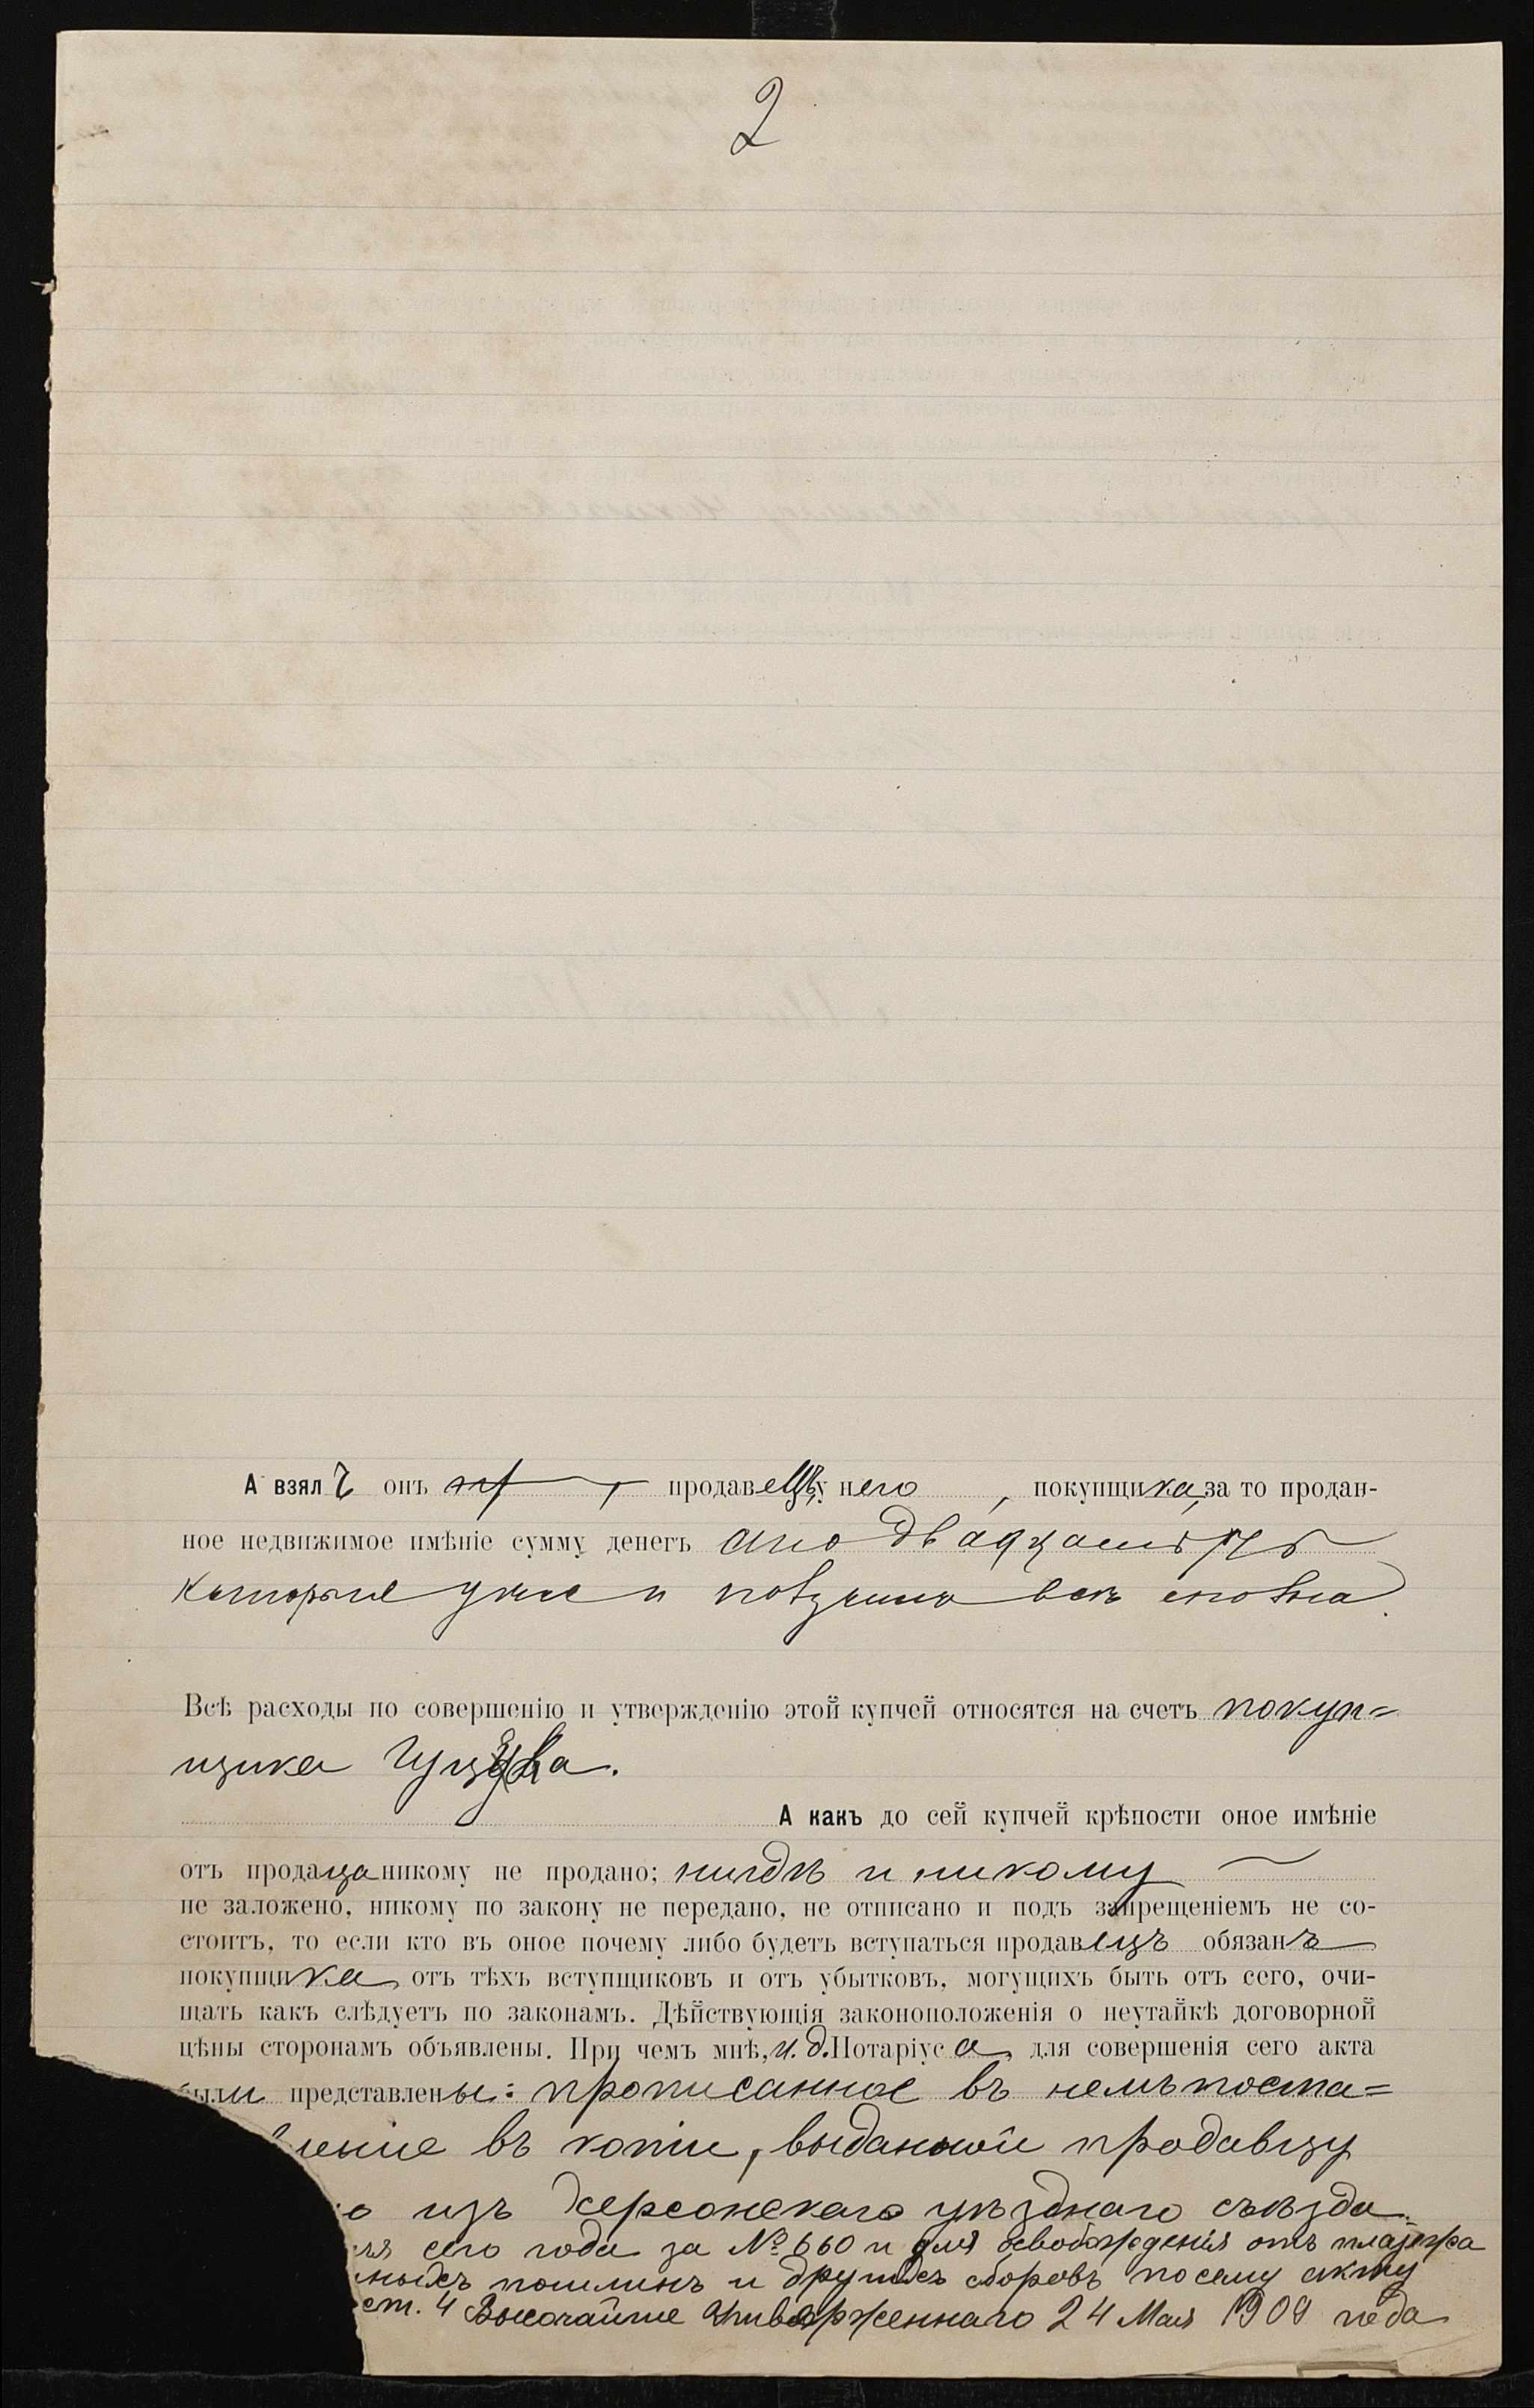 2
А взялъ онъ , продавецъ, у него , покупщика, за то продан-
ное недвижимое имѣніе сумму денегъ сто двадцать
которые уже и сполна
Всѣ расходы по совершенію и утвержденію этой купчей относятся на счетъ покуп=
щика
А какъ до сей купчей крѣпости оное имѣніе
отъ продавца никому не продано; нигдѣ и никому
не заложено, никому по закону не передано, не отписано и подъ запрещеніемъ не со-
стоитъ, то если кто въ оное почему либо будетъ вступаться продавецъ обязанъ
покупщика, отъ тѣхъ вступщиковъ и отъ убытковъ, могущихъ быть отъ сего, очи-
щать какъ слѣдуетъ по законамъ. Дѣйствующія законоположенія о неутайкѣ договорной
цѣны сторонамъ объявлены. При чемъ мнѣ, и. д. Нотаріуса, для совершенія сего акта
были представлены: прописанное въ немъ поста=
вленіе въ копіи, выданной продавцу
о изъ Херсонскаго уѣзднаго съѣзда
ля сего года за № 660 и для освобожденія отъ платежа
ныхъ пошлинъ и другихъ сборовъ по сему акту
ст. 4 Высочайше утвержденнаго 24 Мая 1909 года